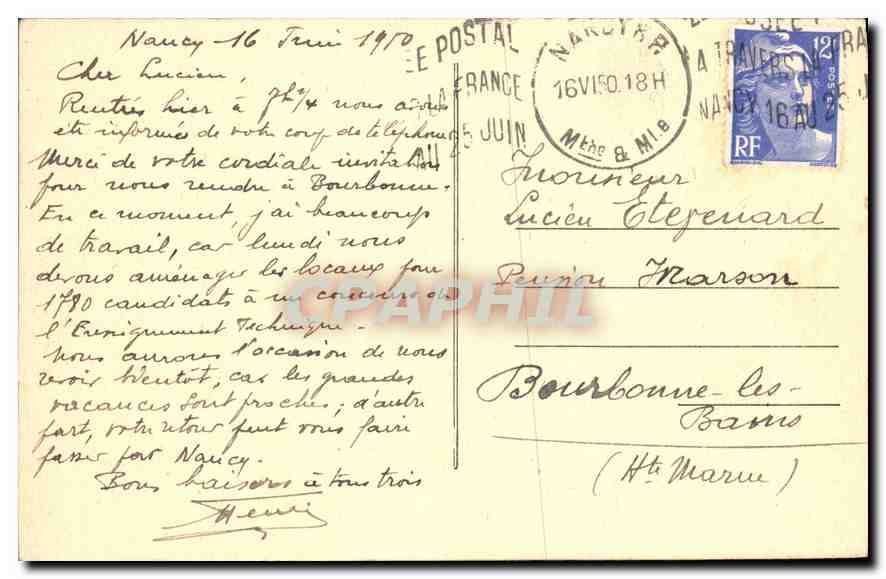 Nancy 16 Juin 1950
Cher Lucien,
Rentrés hier à 7h 3/4 nous avons
été informés de votre coup de téléphone
Merci de votre cordiale invitation
pour nous rendre à Bourbonne.
En ce moment, j'ai beaucoup
de travail, car lundi nous
devons aménager les locaux pour
1780 candidats à un concours de
l'Enseignement Technique.
Nous aurons l'occasion de nous
revoir bientôt, car les grandes
vacances sont proches; d'autre
part, votre retour peut vous faire
passer par Nancy.
Bons baisers à tous trois
Henri
E POSTAL
LA FRANCE
AU 25 JUIN
NANCY R.P.
16 VI 50.18H
Mthe & Mlle
A TRAVERS LA FRA
NANCY 16 AU 25 J
12F
POSTES
RF
Monsieur
Lucien
Pension Marson
Bourbonne-les-
Bains
(Hte Marne)
CPAPHIL